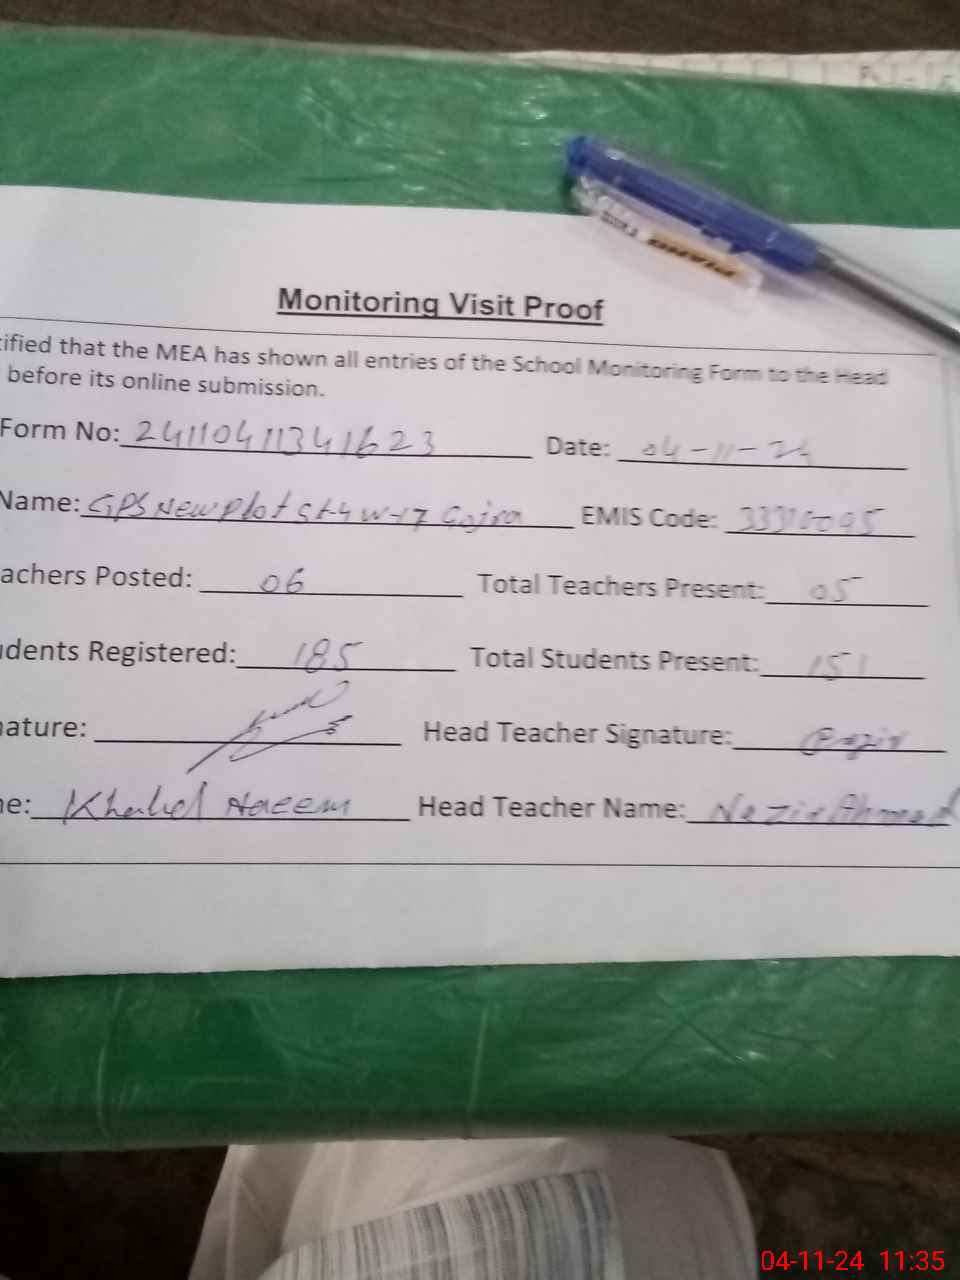 Monitoring Visit Proof
ified that the MEA has shown all entries of the School Monitoring Form to the Head
before its online submission.
Form No: 24110411341623 Date: 04-11-24
Name: GPS New Plot St-4 W-17 Gojra EMIS Code: 33310095
achers Posted: 06 Total Teachers Present: 05
dents Registered: 185 Total Students Present: 151
nature: Head Teacher Signature:
ne: Khalid Naeem Head Teacher Name: Nazir Ahmad
PIANO
04-11-24 11:35